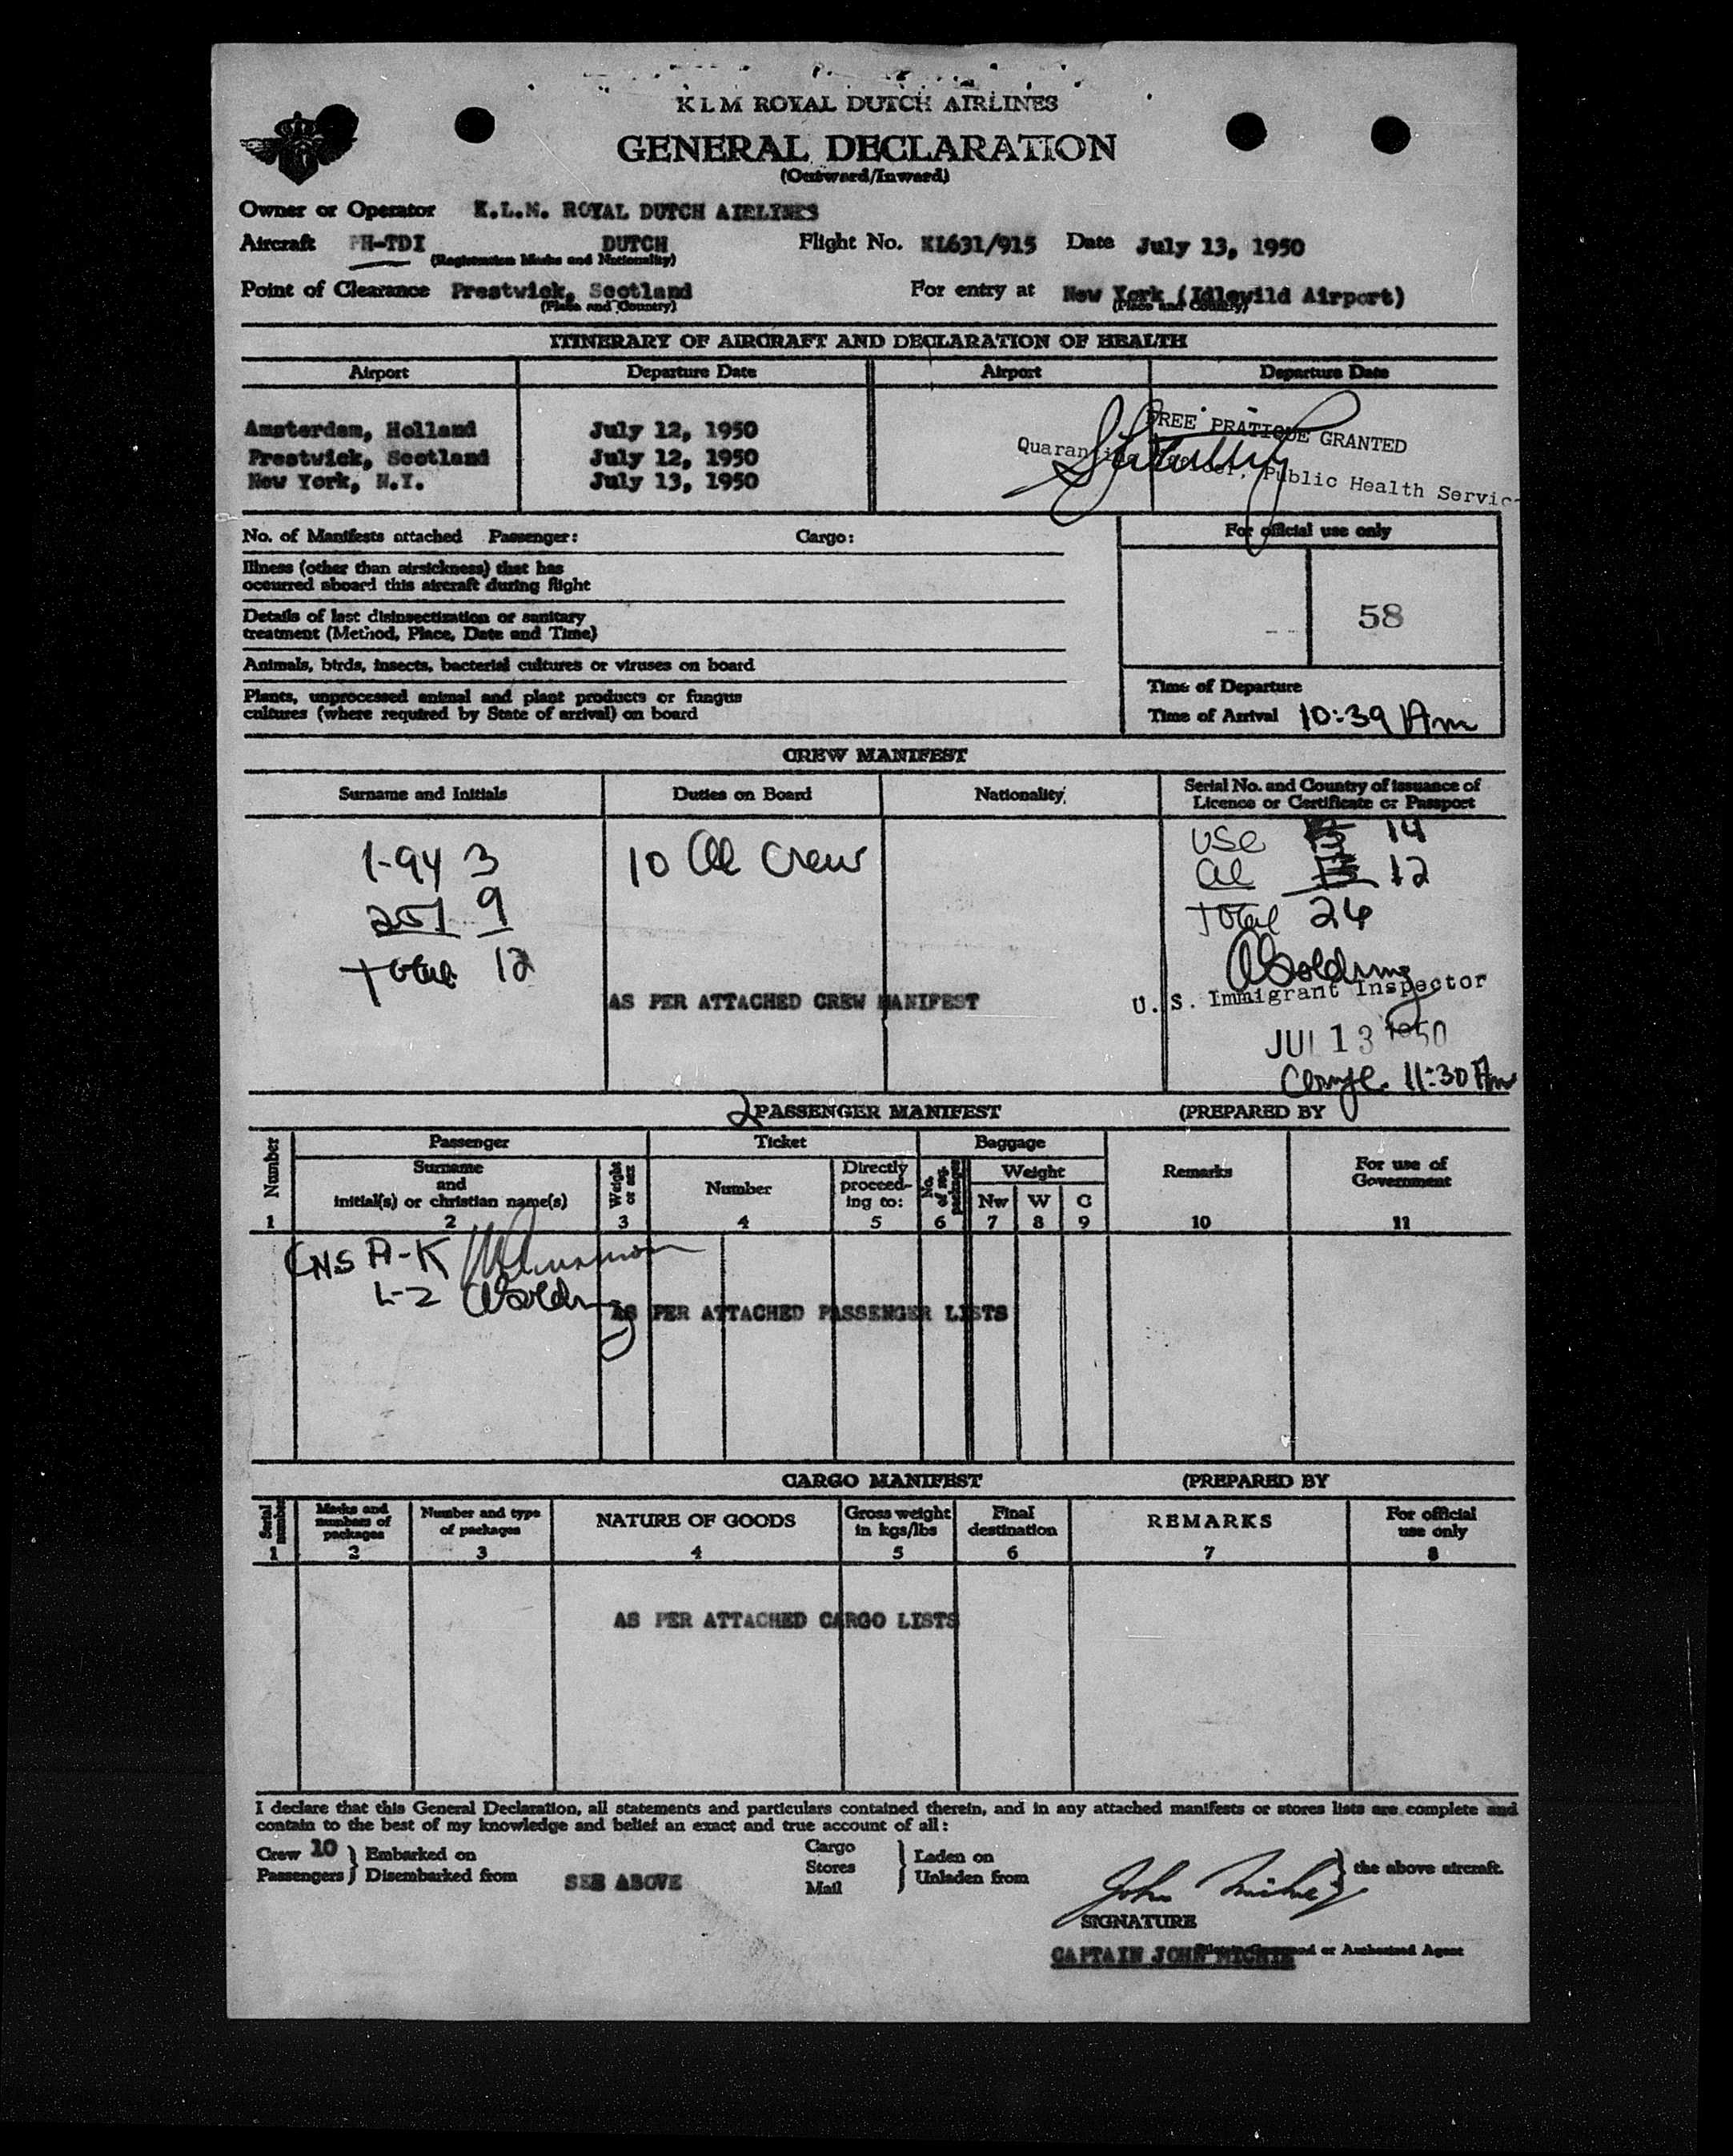 KLM ROYAL DUTCH AIRLINES
GENERAL DECLARATION
(Outward/Inward)
Owner or Operator K.L.M. ROYAL DUTCH AIRLINES
Aircraft PH-TDI DUTCH Flight No. KL631/915 Date July 13, 1950
(Registration Marks and Nationality)
Point of Clearance Prestwick, Scotland For entry at New York (Idlewild Airport)
(Place and Country) (Place and Country)
ITINERARY OF AIRCRAFT AND DECLARATION OF HEALTH
Airport Departure Date Airport Departure Date
FREE PRATIQUE GRANTED
Amsterdam, Holland July 12, 1950
Quarantine Officer, Public Health Servic
Prestwick, Scotland July 12, 1950
New York, N.Y. July 13, 1950
No. of Manifests attached Passenger: Cargo: For official use only
Illness (other than airsickness) that has
occurred aboard this aircraft during flight
Details of last disinsectization or sanitary
treatment (Method, Place, Date and Time)
58
Animals, birds, insects, bacterial cultures or viruses on board
Plants, unprocessed animal and plant products or fungus
cultures (where required by State of arrival) on board
Time of Departure
Time of Arrival 10:39 Am
CREW MANIFEST
Surname and Initials Duties on Board Nationality Serial No. and Country of issuance of
Licence or Certificate or Passport
1-94 3 10 al Crew USC 14
257 9 al 12
Total 12 Total 26
AS PER ATTACHED CREW MANIFEST
U.S. Immigrant Inspector
JUL 13 1950
11:30 Am
2 PASSENGER MANIFEST (PREPARED BY
Number Passenger Ticket Baggage
Surname
and
initial(s) or christian name(s)
Weight or sex Number Directly
proceed-
ing to:
No. of reg. packages Weight Remarks For use of
Government
Nw W C
1 2 3 4 5 6 7 8 9 10 11
CNS A-K
L-Z
AS PER ATTACHED PASSENGER LISTS
CARGO MANIFEST (PREPARED BY
Serial number Marks and
numbers of
packages
Number and type
of packages
NATURE OF GOODS Gross weight
in kgs/lbs
Final
destination
REMARKS For official
use only
1 2 3 4 5 6 7 8
AS PER ATTACHED CARGO LISTS
I declare that this General Declaration, all statements and particulars contained therein, and in any attached manifests or stores lists are complete and
contain to the best of my knowledge and belief an exact and true account of all:
Crew 10 Embarked on
Passengers Disembarked from SEE ABOVE
Cargo
Stores
Mail
Laden on
Unladen from
the above aircraft.
John Michie
SIGNATURE
Pilot in Command or Authorized Agent
CAPTAIN JOHN MICHIE